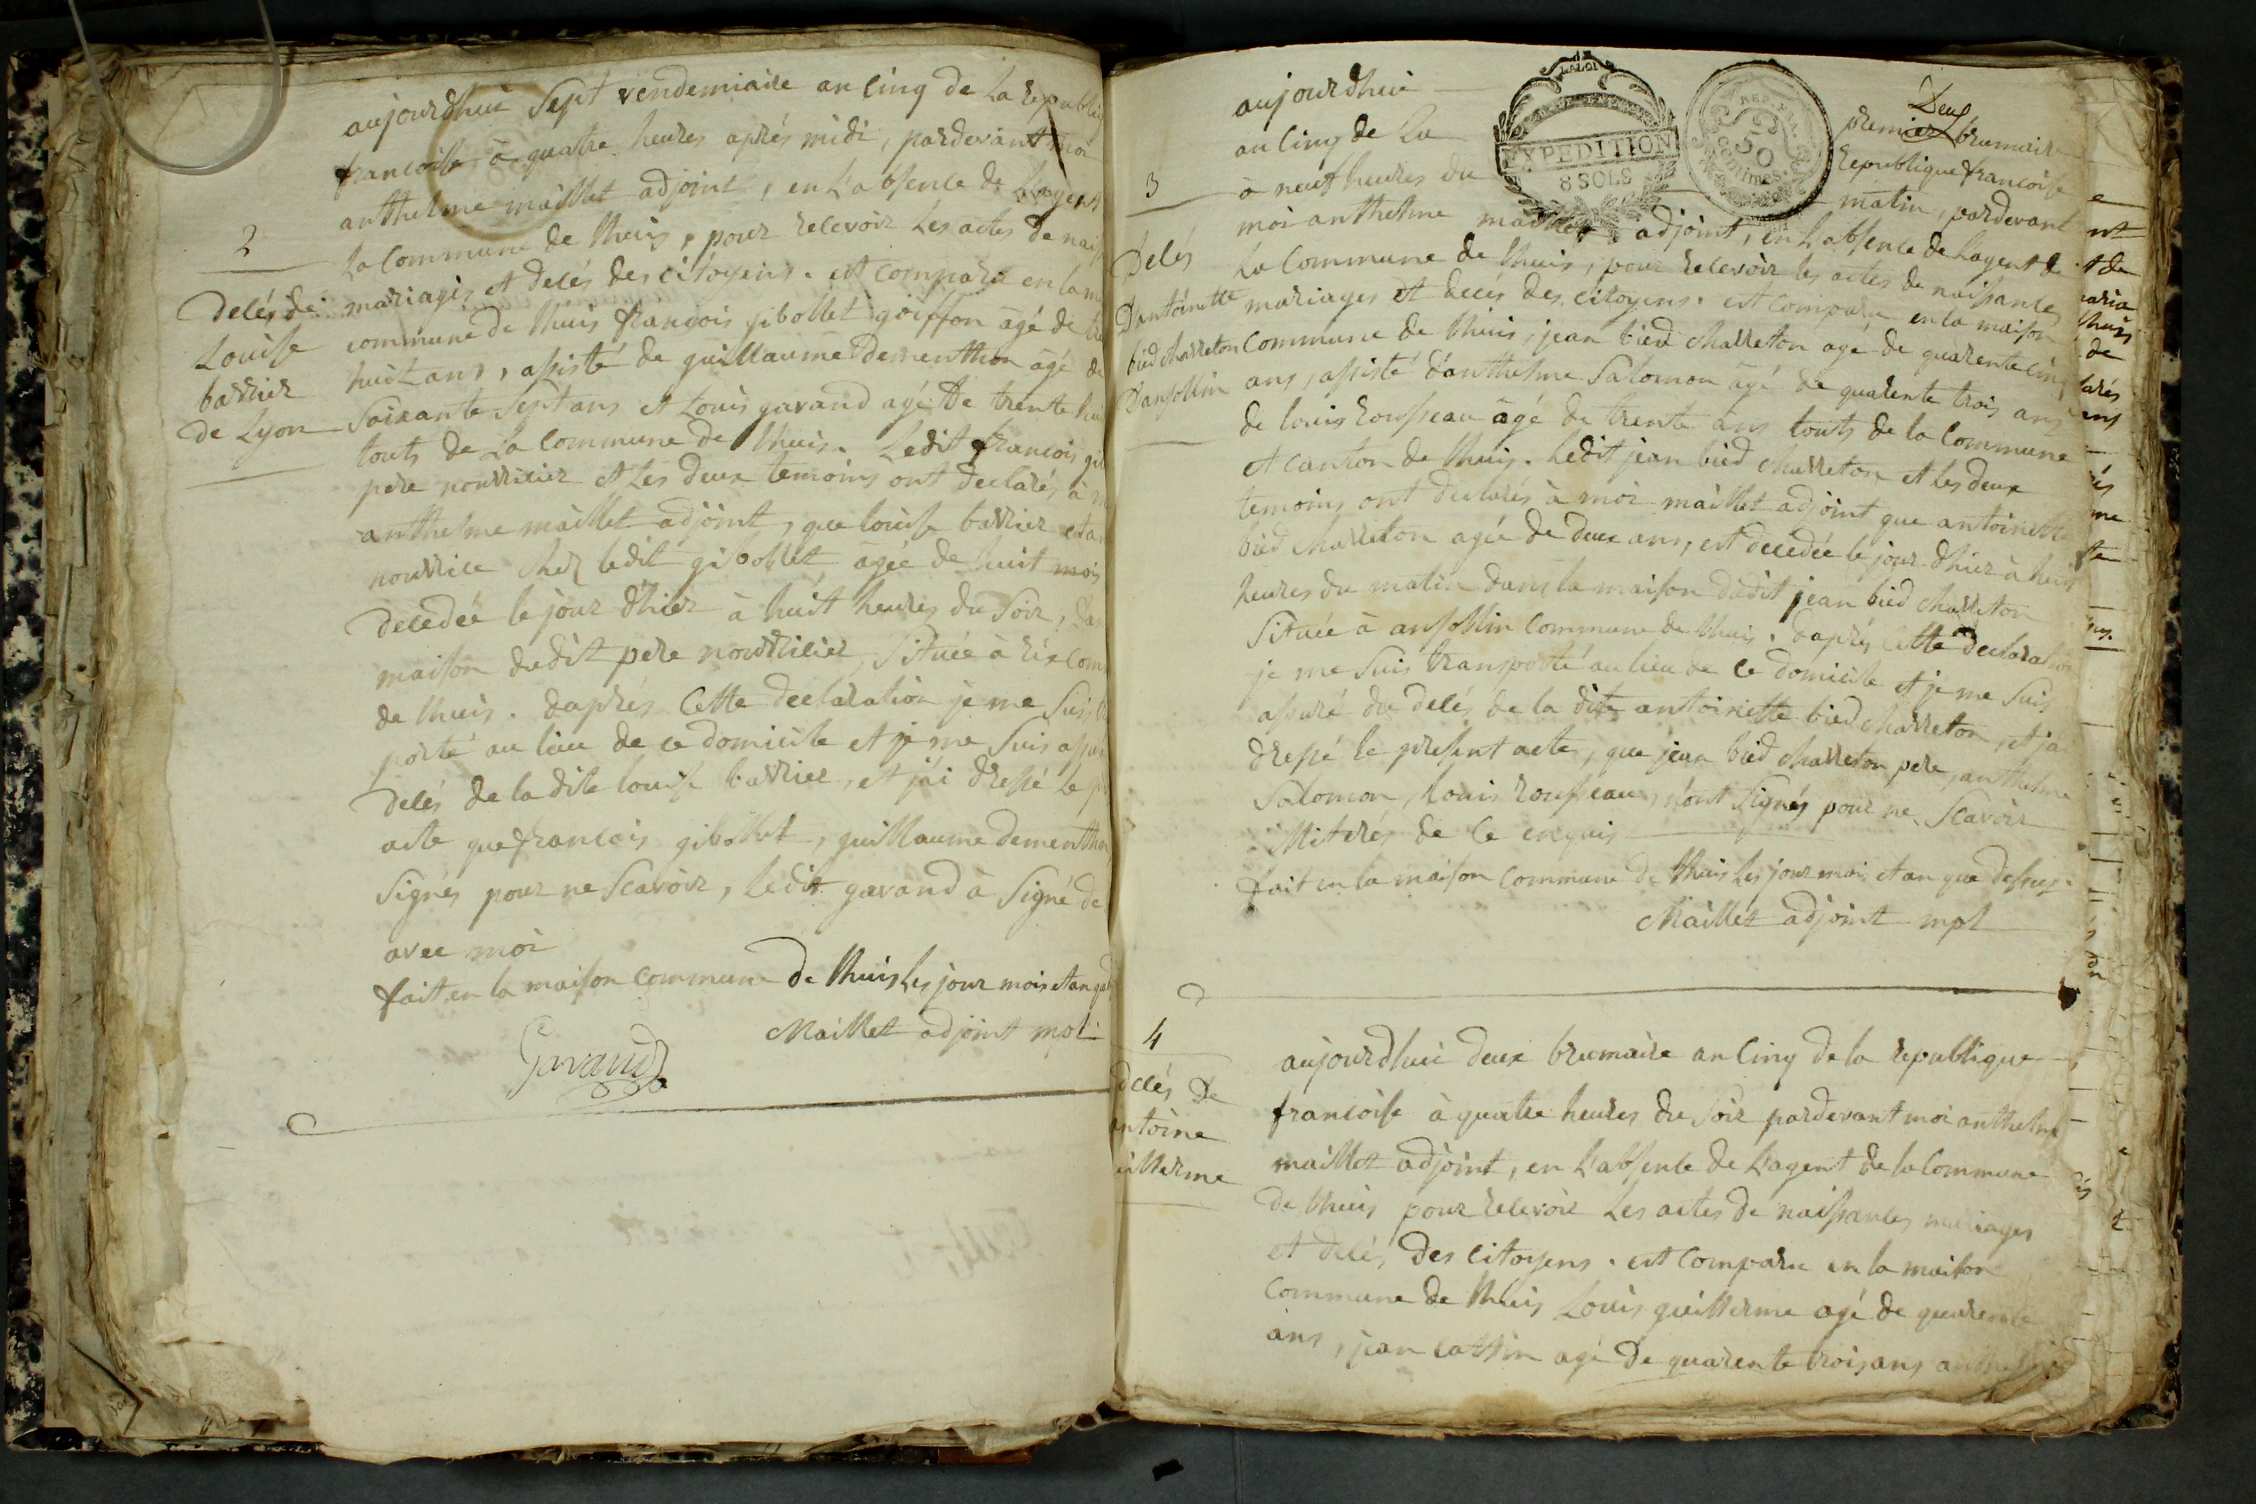 aujourdhui Sept vendemiaire an Cinq de La republiq
francoise à quatre heures après midi, pardevant moi
anthelme maillet adjoint, en L'absence de L'agent
2
La Commune de lhuis, pour recevoir Les actes de naiss
Decés de
mariages et decés des citoyens. est comparu en la m
Louise
commune de lhuis françois gibollet goiffon agé de
barrier
huit ans, assisté de guillaume dementhon âgé de
de Lyon
Soixante Sept ans et Louis gavand agé de trente hui
touts de La Commune de lhuis. Ledit françois gi
pere nourricier et Les deux temoins ont declarés à m
anthelme maillet adjoint, que louise barrier
nourrice chez ledit gibollet agée de huit mois
decedée le jour d'hier à huit heures du Soir, da
maison dudit pere nourricier, Située à rix com
de lhuis. Daprés Cette declaration je me Suis
porté au lieu de ce domicile et je me Suis assu
decés de la dite louise barrier, et j'ai dressé le p
acte que francois gibollet, guillaume dementhon
Signés pour ne Scavoir, Ledit gavand à Signé de
avec moi
fait en la maison commune de lhuis Les jour mois et an que
Maillet adjoint mpl
Gavand
aujourdhui
Deux
premier brumaire
an Cinq de La
republique francoise
L A LOI
EXPEDITION
8 SOLS
REP. FRA.
50
CENTIMES
3
à neuf heures du
matin, pardevant
moi anthelme maillet adjoint, en L'absence de L'agent de
Decés
La Commune de lhuis, pour recevoir les actes de naissances
D'antoinette
mariages et deces des citoyens. est comparu en la maison
bied charreton
Commune de lhuis, jean bied charreton agé de quarente cinq
D'ansollin
ans, assisté d'anthelme Salomon âgé de quarente trois ans
de louis rousseau âgé de trente ans touts de la Commune
et canton de lhuis. Ledit jean bied charreton et Les deux
temoins ont declarés à moi maillet adjoint que antoinette
bied charreton agée de deux ans, est decedée le jour d'hier à huit
heures du matin dans la maison dudit jean bied charreton
Située à ansollin Commune de lhuis. Daprés Cette declaration
je me Suis transporté au lieu de Ce domicile et je me Suis
assuré du decés de la dite antoinette bied charreton, et j'ai
dressé le present acte, que jean bied charreton pere, anthelme
Salomon, Louis rousseau, n'ont Signés pour ne Scavoir
de Ce enquis
fait en la maison Commune de lhuis Les jour mois et an que dessus.
Maillet adjoint mpl
4
aujourdhui deux brumaire an Cinq de la republique
decés de
francoise à quatre heures du Soir pardevant moi anthelme
antoine
maillet adjoint, en L'absence de L'agent de la Commune
uillerme
de lhuis pour recevoir Les actes de naissances mariages
et decés, des citoyens. est comparu en la maison
Commune de lhuis Louis guillerme agé de quarente
ans, jean cattin agé de quarente trois ans anthelme